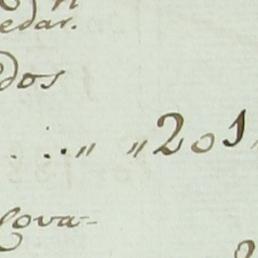 edar.
dos
. . .. " " 201
Cova-